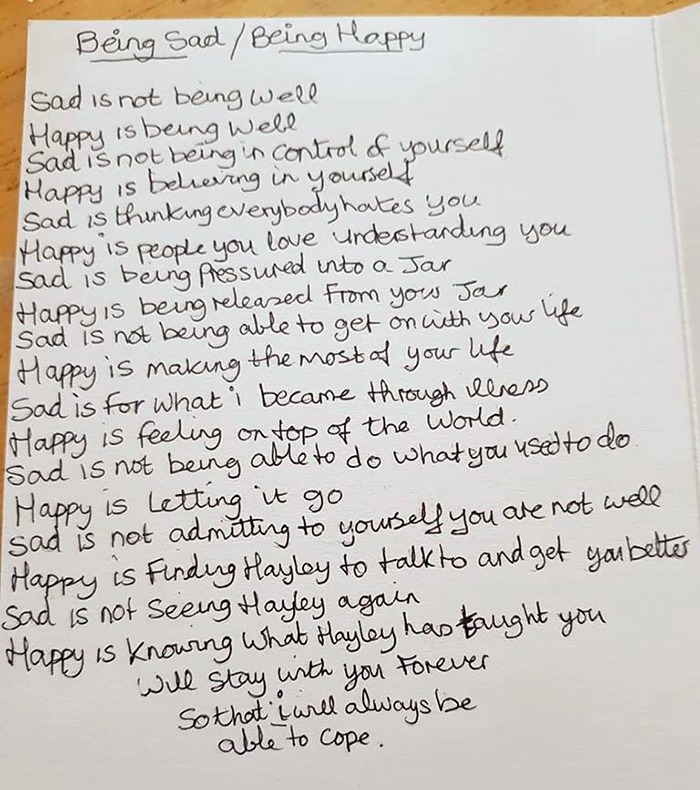 Being Sad / Being Happy
Sad is not being well
Happy is being well
Sad is not being in control of yourself
Happy is believing in yourself
Sad is thinking everybody hates you
Happy is people you love understanding you
Sad is being pressured into a Jar
Happy is being released from your Jar
Sad is not being able to get on with your life
Happy is making the most of your life
Sad is for what i became through illness
Happy is feeling on top of the world.
Sad is not being able to do what you used to do
Happy is Letting it go
Sad is not admitting to yourself you are not well
Happy is Finding Hayley to talk to and get you better
Sad is not seeing Hayley again
Happy is knowing what Hayley has taught you
will stay with you forever
So that i will always be
able to cope.